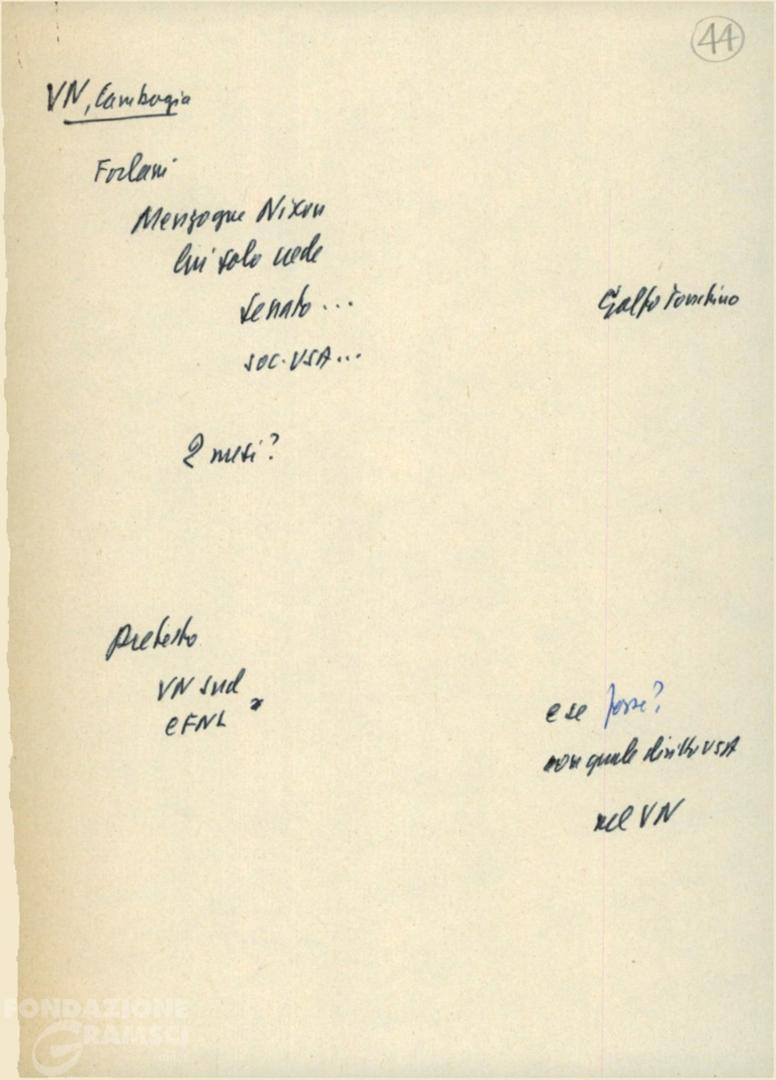 44
VN, Cambogia
Forlani
Menzogne Nixon
lui solo vede
Senato ...
Golfo Tonchino
soc. USA ...
2 mesi?
pretesto
VN sud
e FNL
e se fosse?
con quale diritto USA
nel VN
FONDAZIONE
GRAMSCI